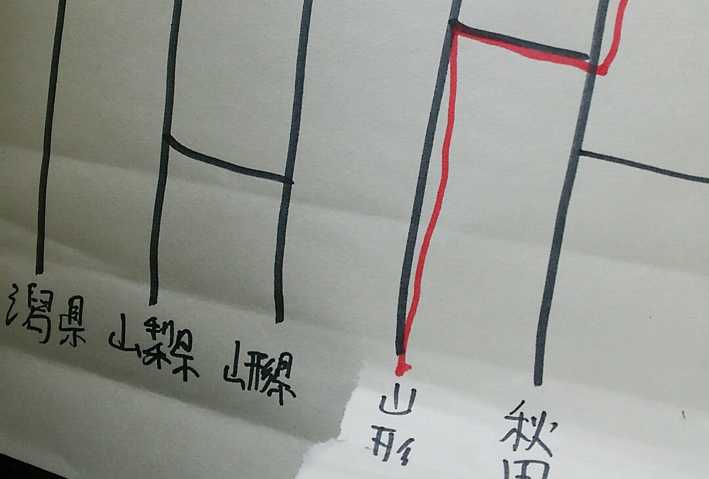 潟県
山梨県
山形県
山
形
秋
田